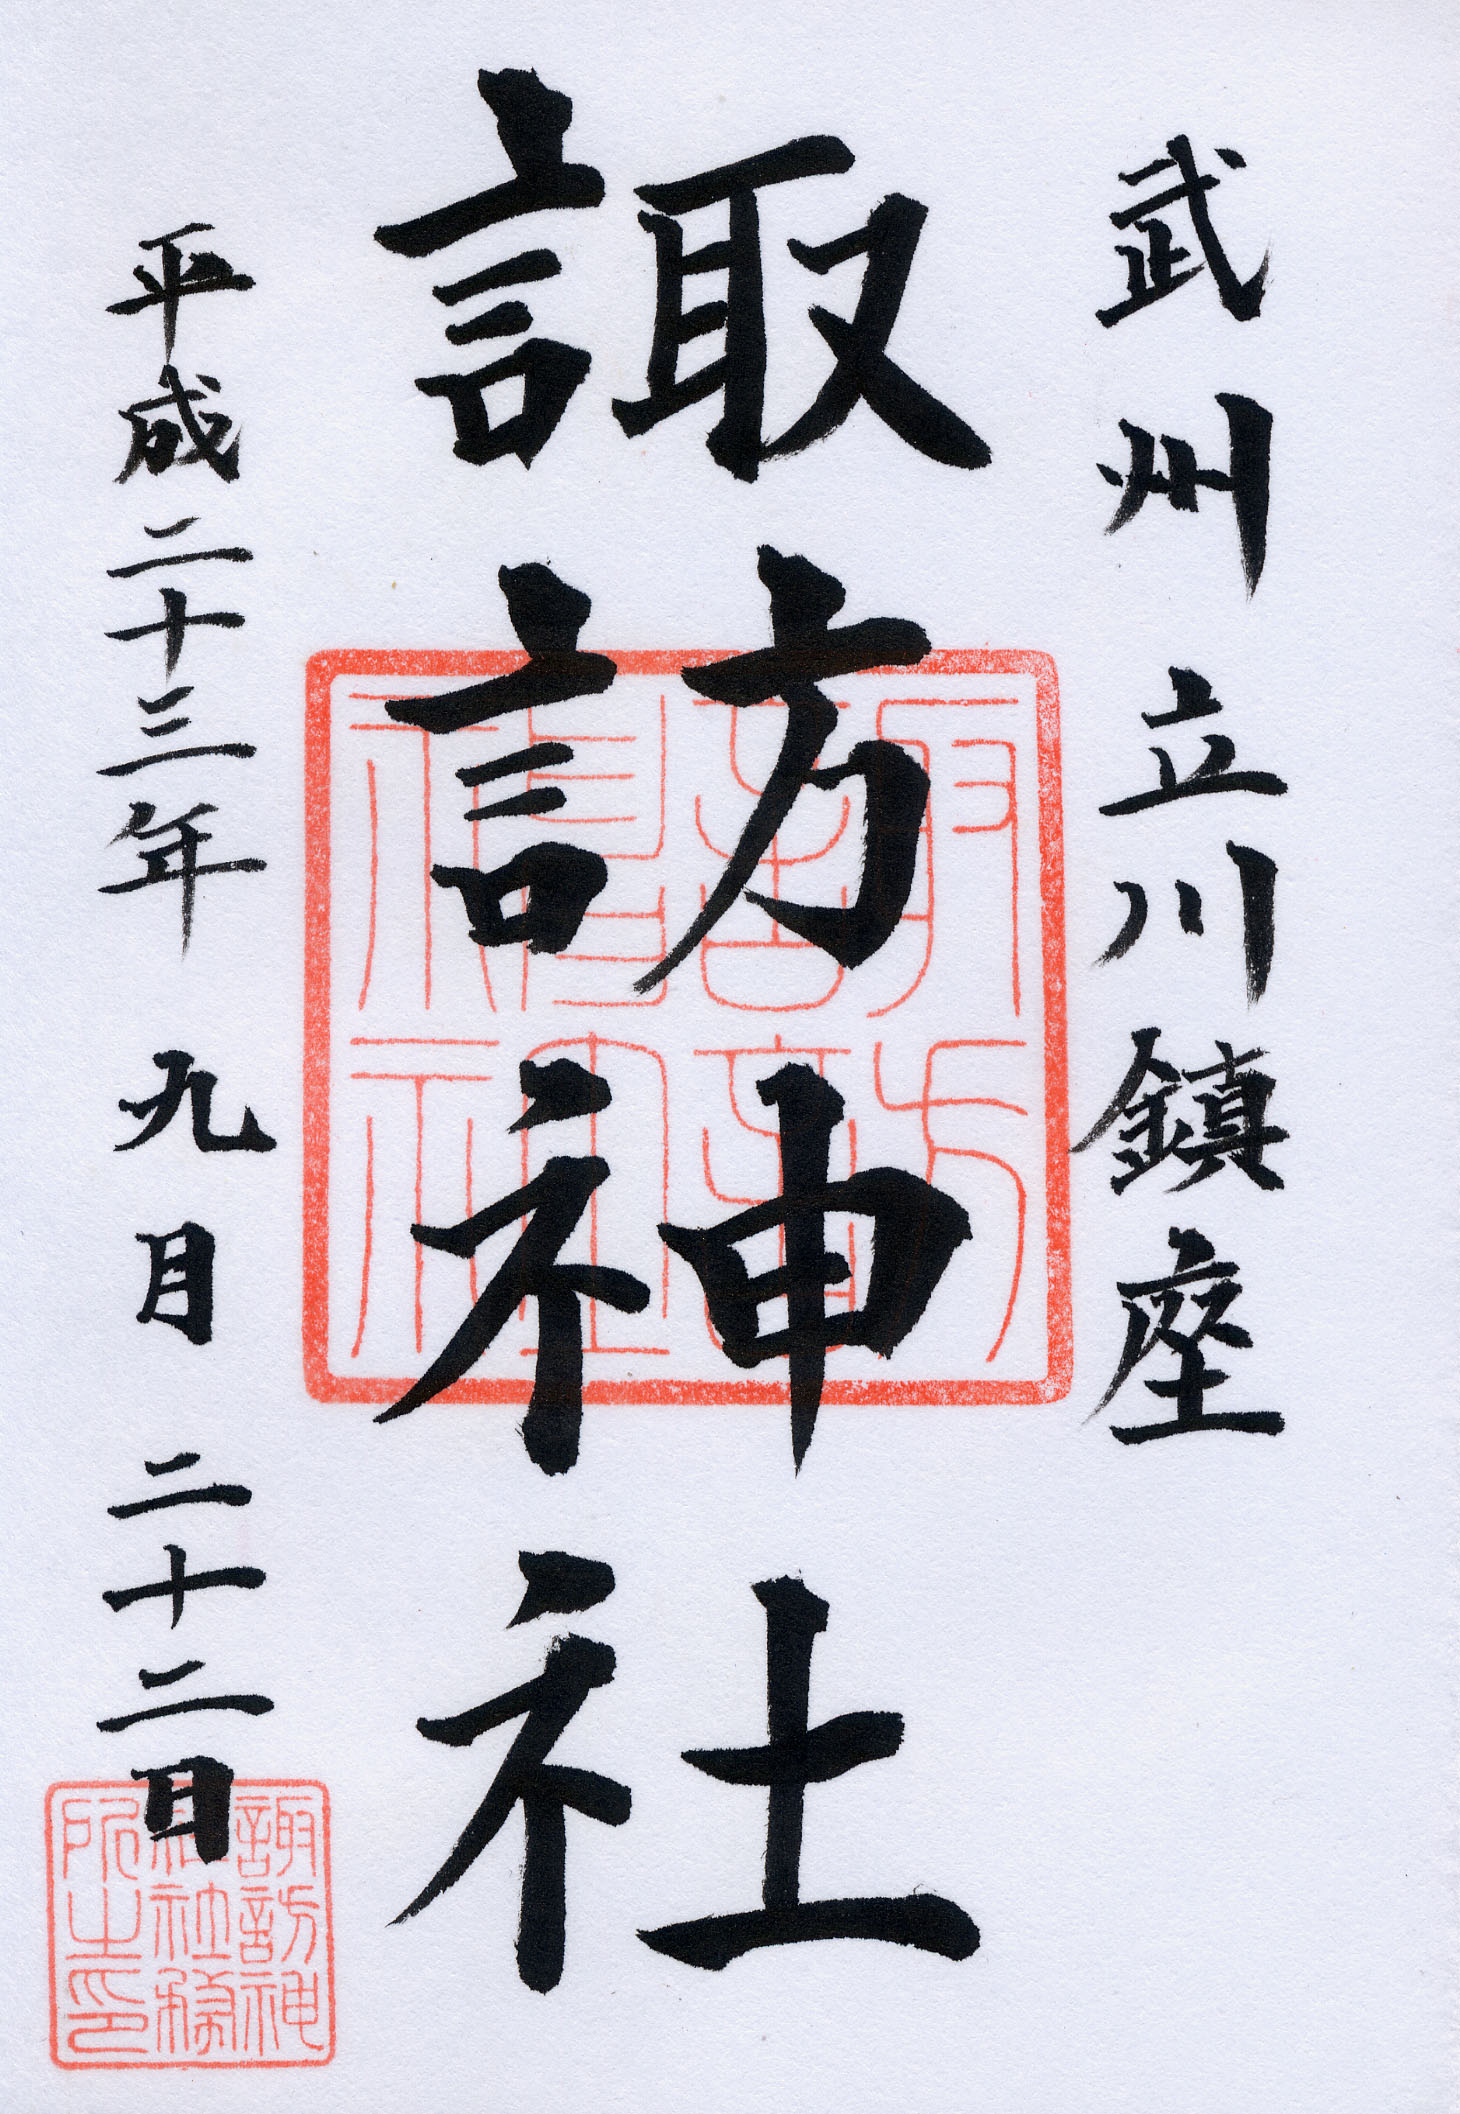 武州立川鎮座
諏訪神社
平成二十三年九月二十二日
諏訪
神社
諏訪神
社社務
所之印